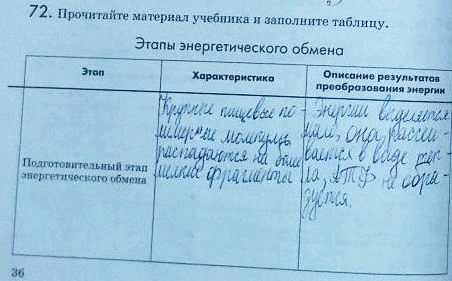 72. Прочитайте материал учебника и заполните таблицу.
Этапы энергетического обмена
Этап
Характеристика
Описание результатов
преобразования энергии
Подготовительный этап
энергетического обмена
Крупные пищевые по-
лимерные молекулы
распадаются на более
мелкие фрагменты
Энергии выделяется
мало, она рассеи-
вается в виде теп-
ла, АТФ не обра-
зуется.
36